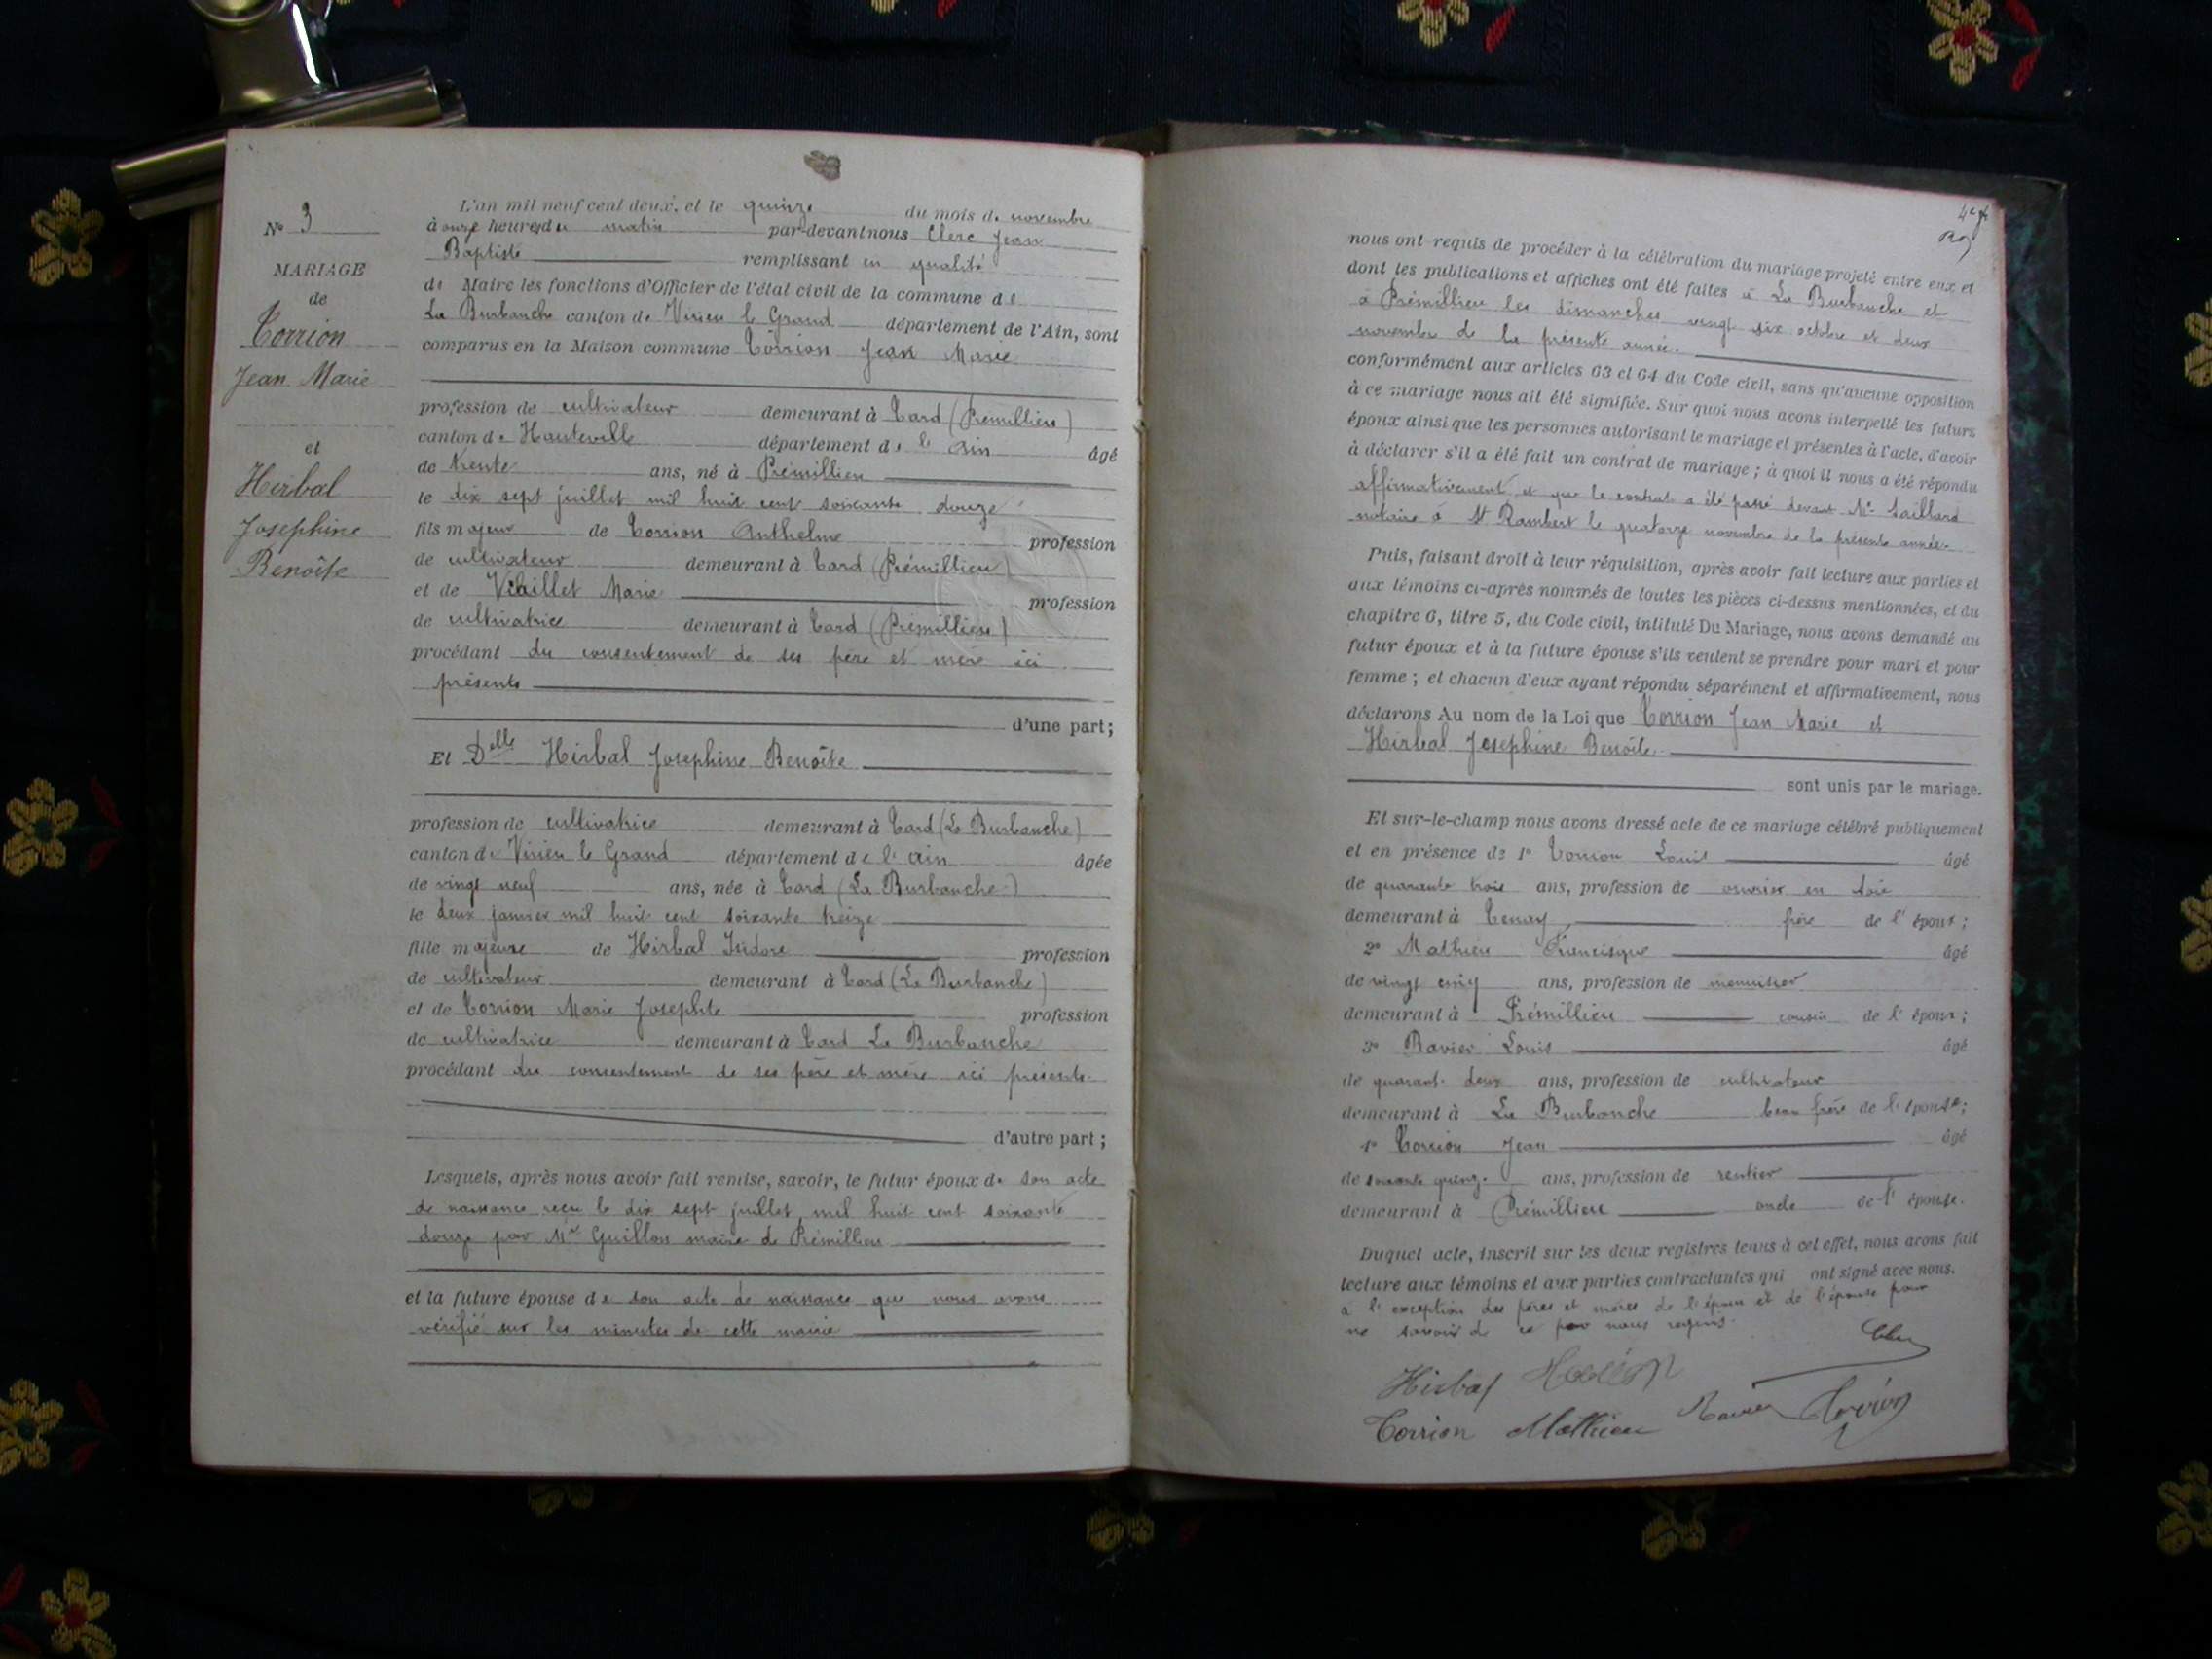 N° 3
MARIAGE
de
Corrion
Jean Marie
et
Hirbal
Josephine
Benoîte
L'an mil neuf cent deux, et le quinze du mois de novembre
à onze heures du matin par-devant nous Clerc Jean
Baptiste remplissant en qualité
de Maire les fonctions d'Officier de l'état civil de la commune de
La Burbanche canton de Virieu le Grand département de l'Ain, sont
comparus en la Maison commune Corrion Jean Marie
profession de cultivateur demeurant à Card (Prémillieu)
canton de Hauteville département de l' Ain âgé
de trente ans, né à Prémillieu
le dix sept juillet mil huit cent soixante douze
fils majeur de Corrion Anthelme profession
de cultivateur demeurant à Card (Prémillieu)
et de Marie profession
de cultivatrice demeurant à Card (Prémillieu)
procédant du consentement de ses père et mère ici
présents
d'une part;
Et Delle Hirbal Josephine Benoîte
profession de cultivatrice demeurant à Card (La Burbanche)
canton de Virieu le Grand département de l' Ain âgée
de vingt neuf ans, née à Card (La Burbanche)
le deux janvier mil huit cent soixante treize
fille majeure de Hirbal Isidore profession
de cultivateur demeurant à Card (La Burbanche)
et de Corrion Marie Josephte profession
de cultivatrice demeurant à Card La Burbanche
procédant du consentement de ses père et mère ici présents
d'autre part;
Lesquels, après nous avoir fait remise, savoir, le futur époux de son acte
de naissance reçu le dix sept juillet mil huit cent soixante
douze par Mr Guillon maire de Prémillieu
et la future épouse de son acte de naissance que nous avons
vérifié sur les minutes de cette mairie
nous ont requis de procéder à la célébration du mariage projeté entre eux et
dont les publications et affiches ont été faites à La Burbanche et
à Prémillieu les dimanches vingt six octobre et deux
novembre de la présente année.
conformément aux articles 63 et 64 du Code civil, sans qu'aucune opposition
à ce mariage nous ait été signifiée. Sur quoi nous avons interpellé les futurs
époux ainsi que les personnes autorisant le mariage et présentes à l'acte, d'avoir
à déclarer s'il a été fait un contrat de mariage; à quoi il nous a été répondu
affirmativement et que le contrat a été passé devant Me Saillard
notaire à St Rambert le quatorze novembre de la présente année.
Puis, faisant droit à leur réquisition, après avoir fait lecture aux parties et
aux témoins ci-après nommés de toutes les pièces ci-dessus mentionnées, et du
chapitre 6, titre 5, du Code civil, intitulé Du Mariage, nous avons demandé au
futur époux et à la future épouse s'ils veulent se prendre pour mari et pour
femme; et chacun d'eux ayant répondu séparément et affirmativement, nous
déclarons Au nom de la Loi que Corrion Jean Marie et
Hirbal Josephine Benoîte
sont unis par le mariage.
Et sur-le-champ nous avons dressé acte de ce mariage célébré publiquement
et en présence de 1° Corrion Louis âgé
de quarante trois ans, profession de ouvrier en soie
demeurant à Tenay, frère de l' époux;
2° Mathieu Francisque âgé
de vingt cinq ans, profession de menuisier
demeurant à Prémillieu cousin de l' époux;
3° Ravier Louis âgé
de quarante deux ans, profession de cultivateur
demeurant à La Burbanche beau frère de l' épouse;
4° Corrion Jean âgé
de soixante quinze ans, profession de rentier
demeurant à Prémillieu oncle de l' épouse.
Duquel acte, inscrit sur les deux registres tenus à cet effet, nous avons fait
lecture aux témoins et aux parties contractantes qui ont signé avec nous.
à l'exception des pères et mères de l'époux et de l'épouse pour
ne savoir de ce par nous requis.
Hirbal
Corrion Mathieu Ravier Corrion